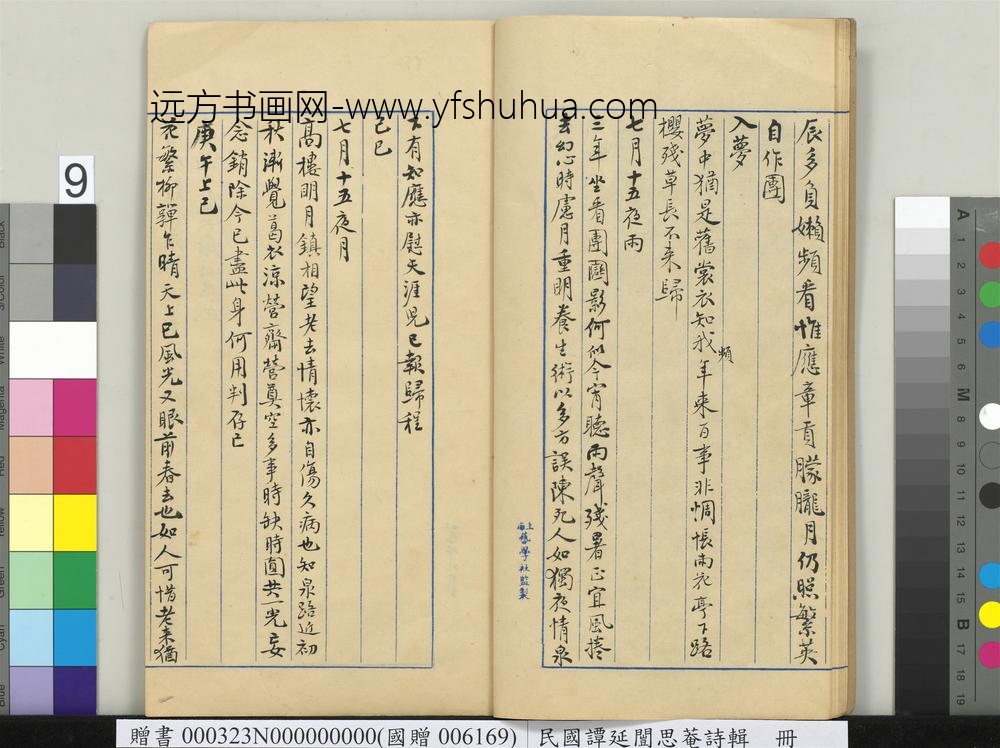 远方书画网-www.yfshuhua.com
辰多負嬾頻看惟應章貢朦朧月仍照繁英
自作團
入夢
夢中猶是舊裳衣知我年來百事非惆悵雨花亭下路
頻
櫻殘草長不来歸
七月十五夜雨
三年坐看團圞影何似今宵聽雨聲殘暑正宜風捲
去幻心時慮月重明養生術以多方誤陳死人如獨夜情泉
下有知應亦慰天涯兒已報歸程
己巳
七月十五夜月
高樓明月鎮相望老去情懷亦自傷久病也知泉路近初
秋漸覺葛衣涼營齋營奠空多事時缺時圓共一光妄
念銷除今已盡此身何用判存亡
庚午上巳
花繁柳嚲乍晴天上巳風光又眼前春去也如人可惜老来猶
上海藝學社監製
9
贈書 000323N000000000(國贈 006169)
民國譚延闓思菴詩輯 冊
A 1 2 3 4 5 6 M 8 9 10 11 12 13 14 15 B 17 18 19
Black
3/Color
White
Magenta
Red
Yellow
Green
Cyan
Blue